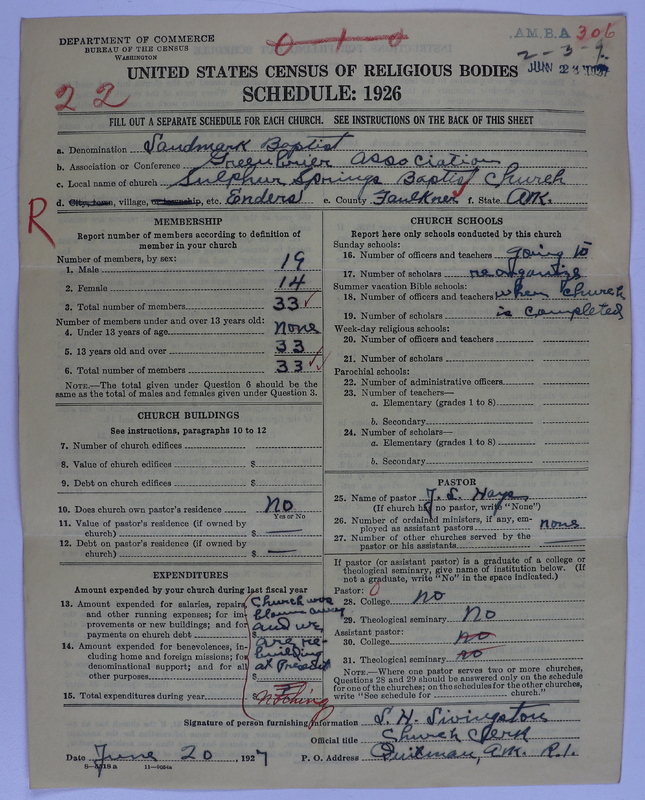 DEPARTMENT OF COMMERCE
BUREAU OF THE CENSUS
WASHINGTON
A.M.B.A 306
2-3-9.
UNITED STATES CENSUS OF RELIGIOUS BODIES
22
SCHEDULE: 1926
FILL OUT A SEPARATE SCHEDULE FOR EACH CHURCH. SEE INSTRUCTIONS ON THE BACK OF THIS SHEET
a. Denomination Landmark Baptist
b. Association or Conference Greenbrier Association
c. Local name of church Sulphur Springs Baptist Church
d. City, town, village, or township, etc. Enders e. County Faulkner f. State Ark.
R
MEMBERSHIP
Report number of members according to definition of member in your church
Number of members, by sex:
1. Male 19
2. Female 14
3. Total number of members 33
Number of members under and over 13 years old:
4. Under 13 years of age none
5. 13 years old and over 33
6. Total number of members 33
NOTE.—The total given under Question 6 should be the same as the total of males and females given under Question 3.
CHURCH BUILDINGS
See instructions, paragraphs 10 to 12
7. Number of church edifices
8. Value of church edifices $
9. Debt on church edifices $
10. Does church own pastor's residence no
Yes or No
11. Value of pastor's residence (if owned by church) $ —
12. Debt on pastor's residence (if owned by church) $ —
EXPENDITURES
Amount expended by your church during last fiscal year
13. Amount expended for salaries, repairs, and other running expenses; for improvements or new buildings; and for payments on church debt $
14. Amount expended for benevolences, including home and foreign missions; for denominational support; and for all other purposes $
Church was
blown away
and we
are re-
building
at Present
15. Total expenditures during year $ nothing
CHURCH SCHOOLS
Report here only schools conducted by this church
Sunday schools:
16. Number of officers and teachers going to
17. Number of scholars reorganize
Summer vacation Bible schools:
18. Number of officers and teachers when church
19. Number of scholars is completed
Week-day religious schools:
20. Number of officers and teachers
21. Number of scholars
Parochial schools:
22. Number of administrative officers
23. Number of teachers—
a. Elementary (grades 1 to 8)
b. Secondary
24. Number of scholars—
a. Elementary (grades 1 to 8)
b. Secondary
PASTOR
25. Name of pastor J. L. Hays
(If church has no pastor, write "None")
26. Number of ordained ministers, if any, employed as assistant pastors none
27. Number of other churches served by the pastor or his assistants —
If pastor (or assistant pastor) is a graduate of a college or theological seminary, give name of institution below. (If not a graduate, write "No" in the space indicated.)
Pastor:
28. College no
29. Theological seminary No
Assistant pastor:
30. College no
31. Theological seminary no
NOTE.—Where one pastor serves two or more churches, Questions 28 and 29 should be answered only on the schedule for one of the churches; on the schedules for the other churches, write "See schedule for church."
Signature of person furnishing information L. H. Livingston
Official title Church Clerk
Date June 20, 1927 P. O. Address Quitman, Ark. R.1.
8-5518a 11-9054a